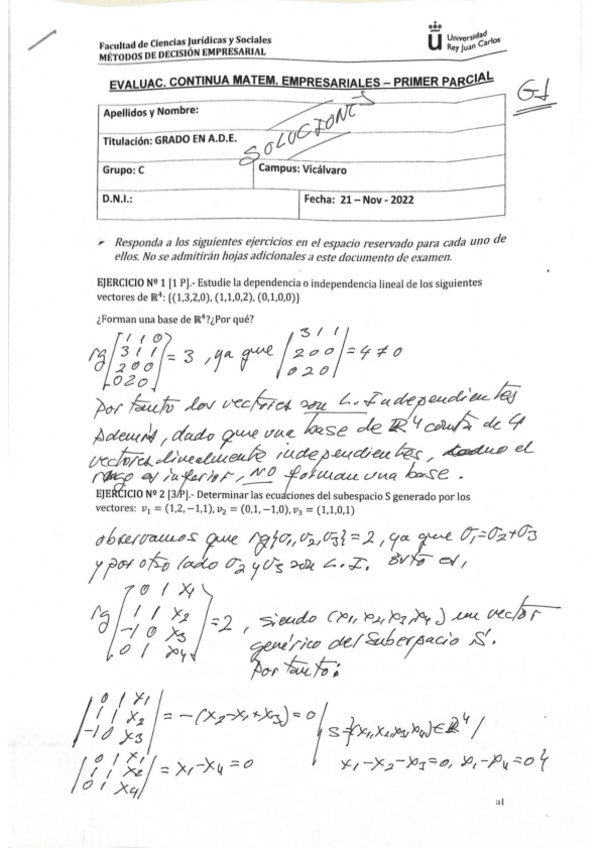 Facultad de Ciencias Jurídicas y Sociales
MÉTODOS DE DECISIÓN EMPRESARIAL
Universidad
Rey Juan Carlos
EVALUAC. CONTINUA MATEM. EMPRESARIALES – PRIMER PARCIAL
G1
Apellidos y Nombre:
SOLUCIONES
Titulación: GRADO EN A.D.E.
Grupo: C
Campus: Vicálvaro
D.N.I.:
Fecha: 21 – Nov - 2022
➢ Responda a los siguientes ejercicios en el espacio reservado para cada uno de
ellos. No se admitirán hojas adicionales a este documento de examen.
EJERCICIO Nº 1 [1 P].- Estudie la dependencia o independencia lineal de los siguientes
vectores de ℝ⁴: {(1,3,2,0), (1,1,0,2), (0,1,0,0)}
¿Forman una base de ℝ⁴?¿Por qué?
rg [1 1 0; 3 1 1; 2 0 0; 0 2 0] = 3, ya que |3 1 1; 2 0 0; 0 2 0| = 4 ≠ 0
Por tanto los vectores son L. Independientes
Además, dado que una base de ℝ⁴ consta de 4
vectores linealmente independientes, el
rango es inferior, NO forman una base.
EJERCICIO Nº 2 [3/P].- Determinar las ecuaciones del subespacio S generado por los
vectores: v₁ = (1,2,−1,1), v₂ = (0,1,−1,0), v₃ = (1,1,0,1)
observamos que rg{v₁,v₂,v₃} = 2, ya que v₁=v₂+v₃
y por otro lado v₂ y v₃ son L.I. Esto es,
rg [0 1 x₁; 1 1 x₂; -1 0 x₃; 0 1 x₄] = 2, siendo (x₁,x₂,x₃,x₄) un vector
genérico del Subespacio S.
Por tanto:
|0 1 x₁; 1 1 x₂; -1 0 x₃| = -(x₂-x₁+x₃) = 0
|0 1 x₁; 1 1 x₂; 0 1 x₄| = x₁-x₄ = 0
S={(x₁,x₂,x₃,x₄)∈ℝ⁴/
x₁-x₂-x₃=0, x₁-x₄=0}
a1